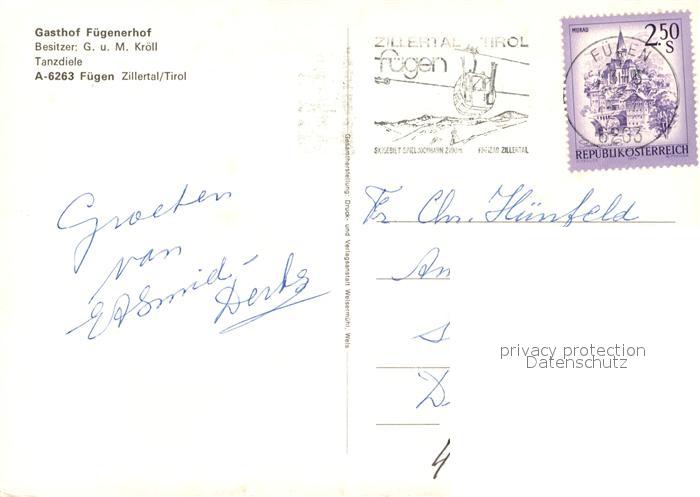 Gasthof Fügenerhof
Besitzer: G. u. M. Kröll
Tanzdiele
A-6263 Fügen Zillertal/Tirol
ZILLERTAL TIROL
fügen
SKIGEBIET SPIELJOCHBAHN
ZILLERTAL
MURAU
2.50
S
FÜGEN
6263
REPUBLIK ÖSTERREICH
Gesamtherstellung: Druck- und Verlagsanstalt Welsermühl, Wels
Groeten
van
Fr. Chr. Hünfeld
An
S
D
4
privacy protection
Datenschutz